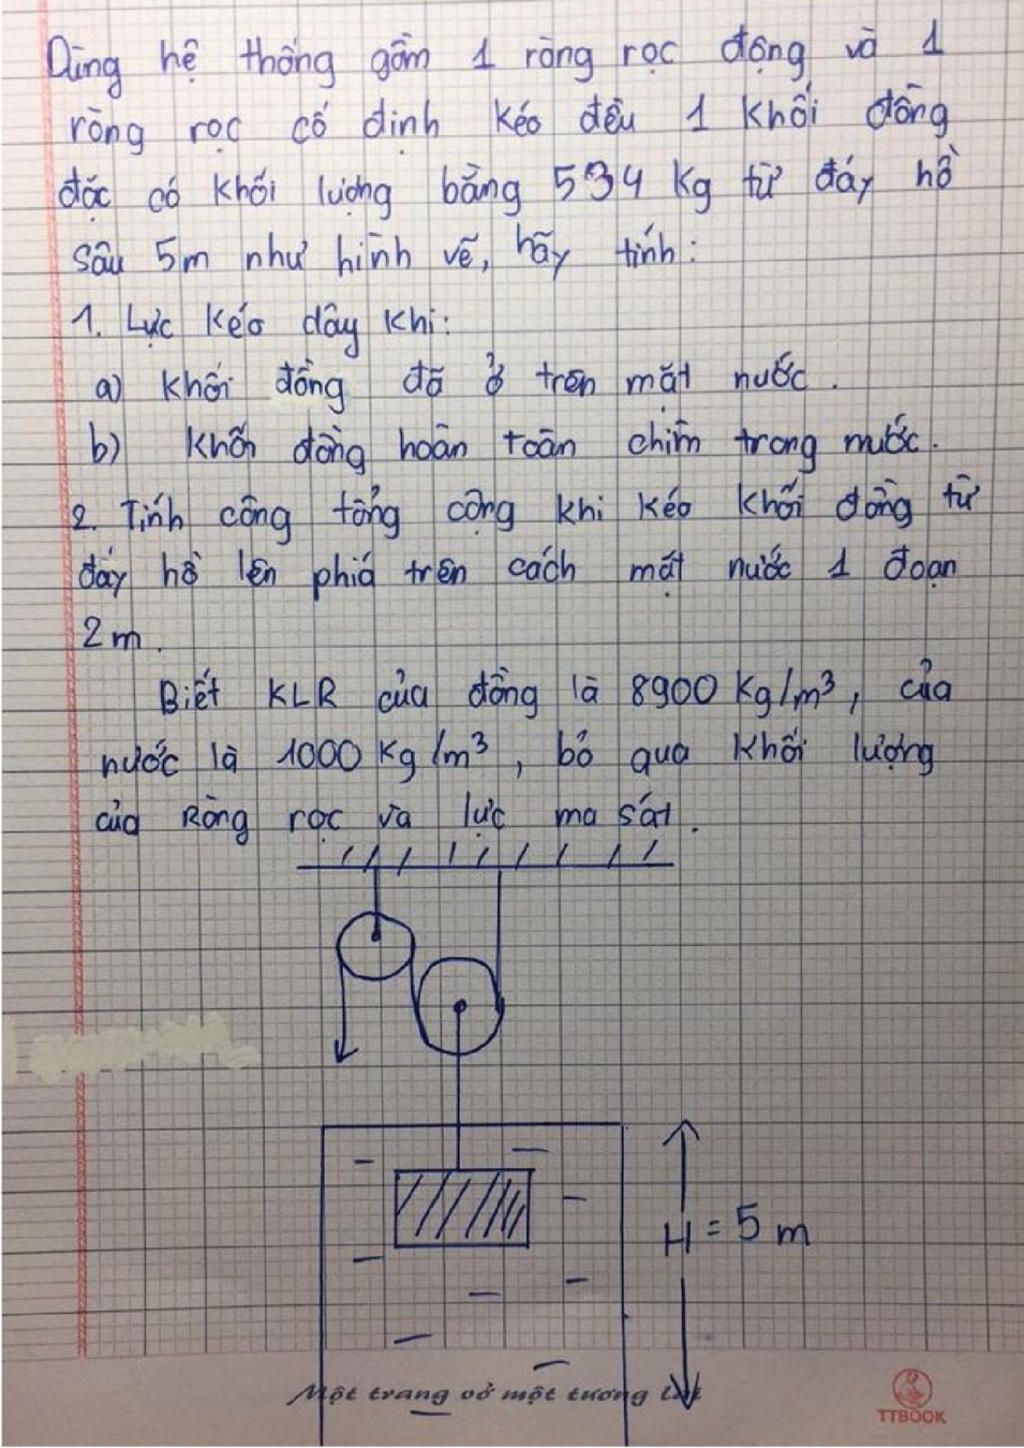 Dùng hệ thống gồm 1 ròng rọc động và 1
ròng rọc cố định kéo đều 1 khối đồng
đặc có khối lượng bằng 534 kg từ đáy hồ
sâu 5m như hình vẽ, hãy tính:
1. Lực kéo dây khi:
a) khối đồng đã ở trên mặt nước.
b) khối đồng hoàn toàn chìm trong nước.
2. Tính công tổng cộng khi kéo khối đồng từ
đáy hồ lên phía trên cách mặt nước 1 đoạn
2m.
Biết KLR của đồng là 8900 kg/m³, của
nước là 1000 kg/m³, bỏ qua khối lượng
của Ròng rọc và lực ma sát.
H = 5 m
Một trang vở một tương lai
TTBOOK